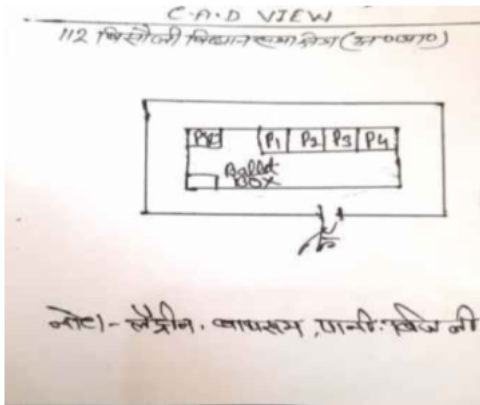 C.A.D VIEW
112 बिसौली विधान सभा क्षेत्र (अ०जा०)
P1 P2 P3 P4
Ballot
BOX
नोट।- लैट्रीन. बाथरूम, पानी. बिजली